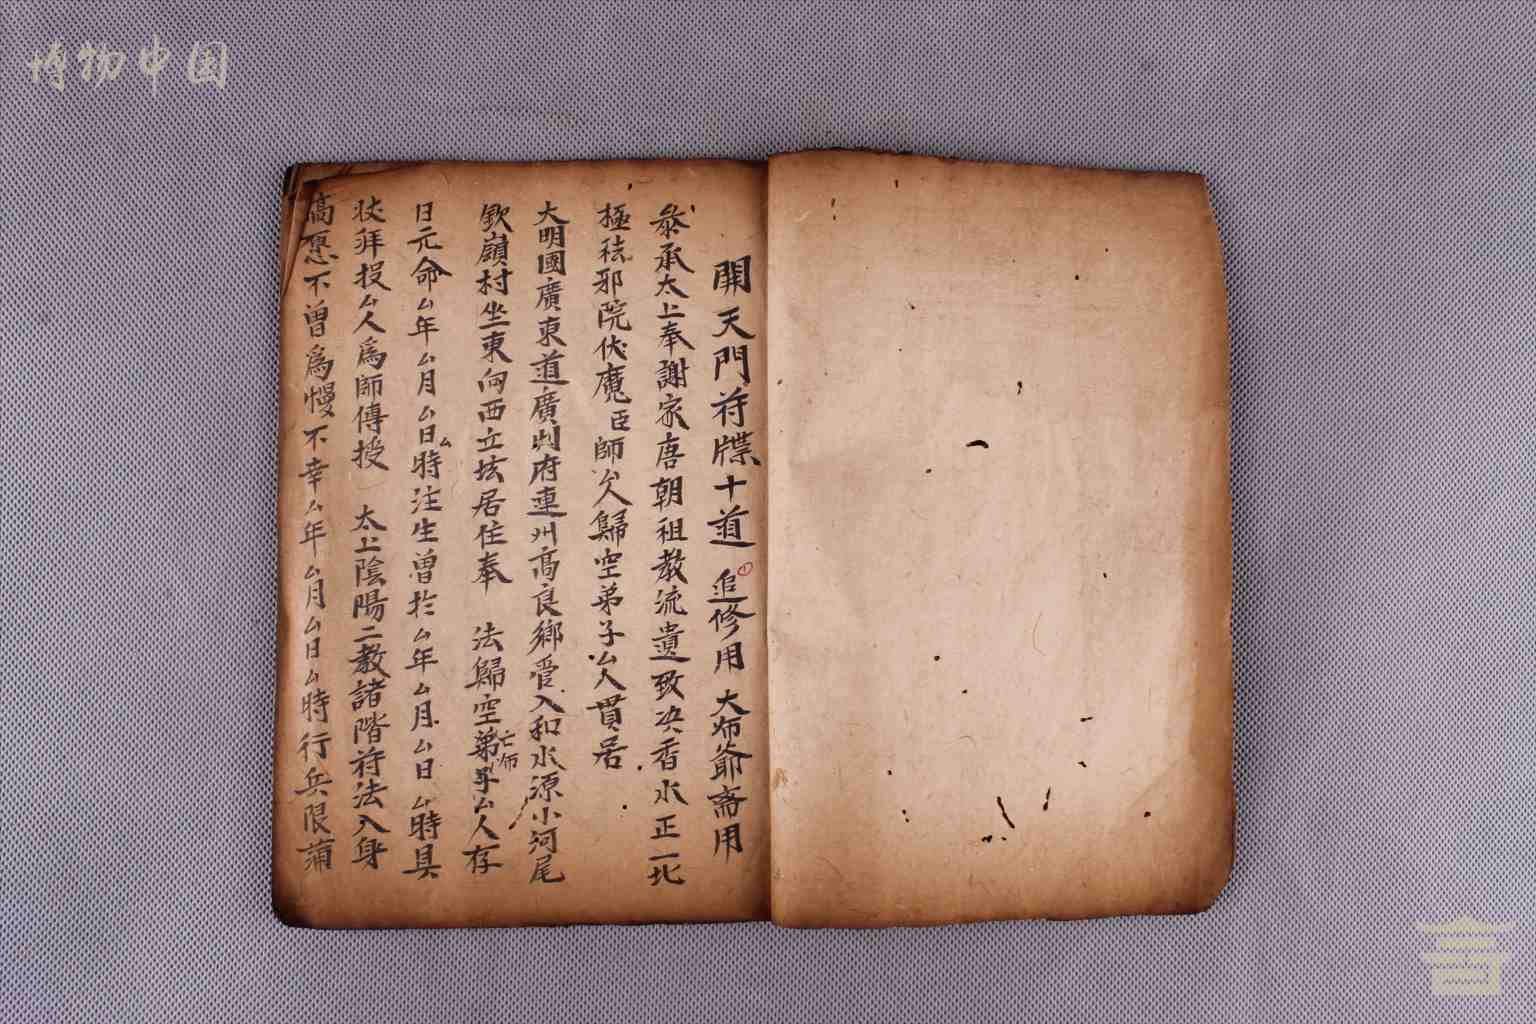 博物中国
開天門符牒十道 追修用 大师爺齋用
叅承太上奉謝家唐朝祖教流遺致决香水正一北
極祛邪院伏魔臣師厶人歸空弟子厶人貫居
大明國廣東道廣州府連州高良鄉管入和水源小河尾
欽嶺村坐東向西立垓居住奉 法歸空弟子厶人存
亡师
日元命厶年厶月厶日厶時注生曽於厶年厶月厶日厶時具
状拜投厶人爲師傳授 太上陰陽二教諸階符法入身
不曽爲慢不幸厶年厶月厶日厶時行兵限蒲